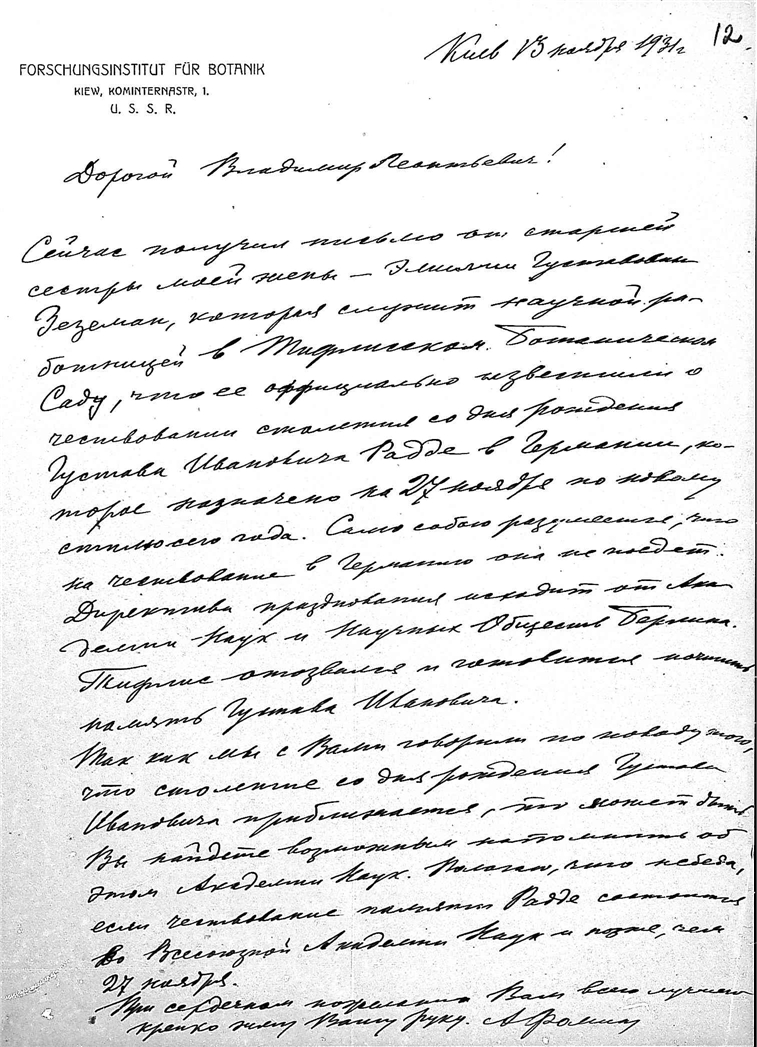 12
Киев 13 ноября 1931г
FORSCHUNGSINSTITUT FÜR BOTANIK
KIEW, KOMINTERNASTR, 1.
U. S. S. R.
Дорогой Владимир Леонтьевич!
Сейчас получил письмо от старшей
сестры моей жены — Эмилии Густавовны
Зеземан, которая служит научной ра-
ботницей в Тифлисском Ботаническом
Саду, что ее официально известили о
чествовании столетия со дня рождения
Густава Ивановича Радде в Германии, ко-
торое назначено на 27 ноября по новому
стилю сего года. Само собою разумеется, что
на чествование в Германию она не поедет.
Директива празднования исходит от Ака-
демии Наук и Научных Обществ Берлина.
Тифлис отозвался и готовится почтить
память Густава Ивановича.
Так как мы с Вами говорили по поводу того,
что столетие со дня рождения Густава
Ивановича приближается, то может быть
Вы найдете возможным напомнить об
этом Академии Наук. Полагаю, что не беда,
если чествование памяти Радде состоится
во Всесоюзной Академии Наук и позже, чем
27 ноября.
При сердечном пожелании Вам всего лучшего
крепко жму Вашу руку. А Фомин